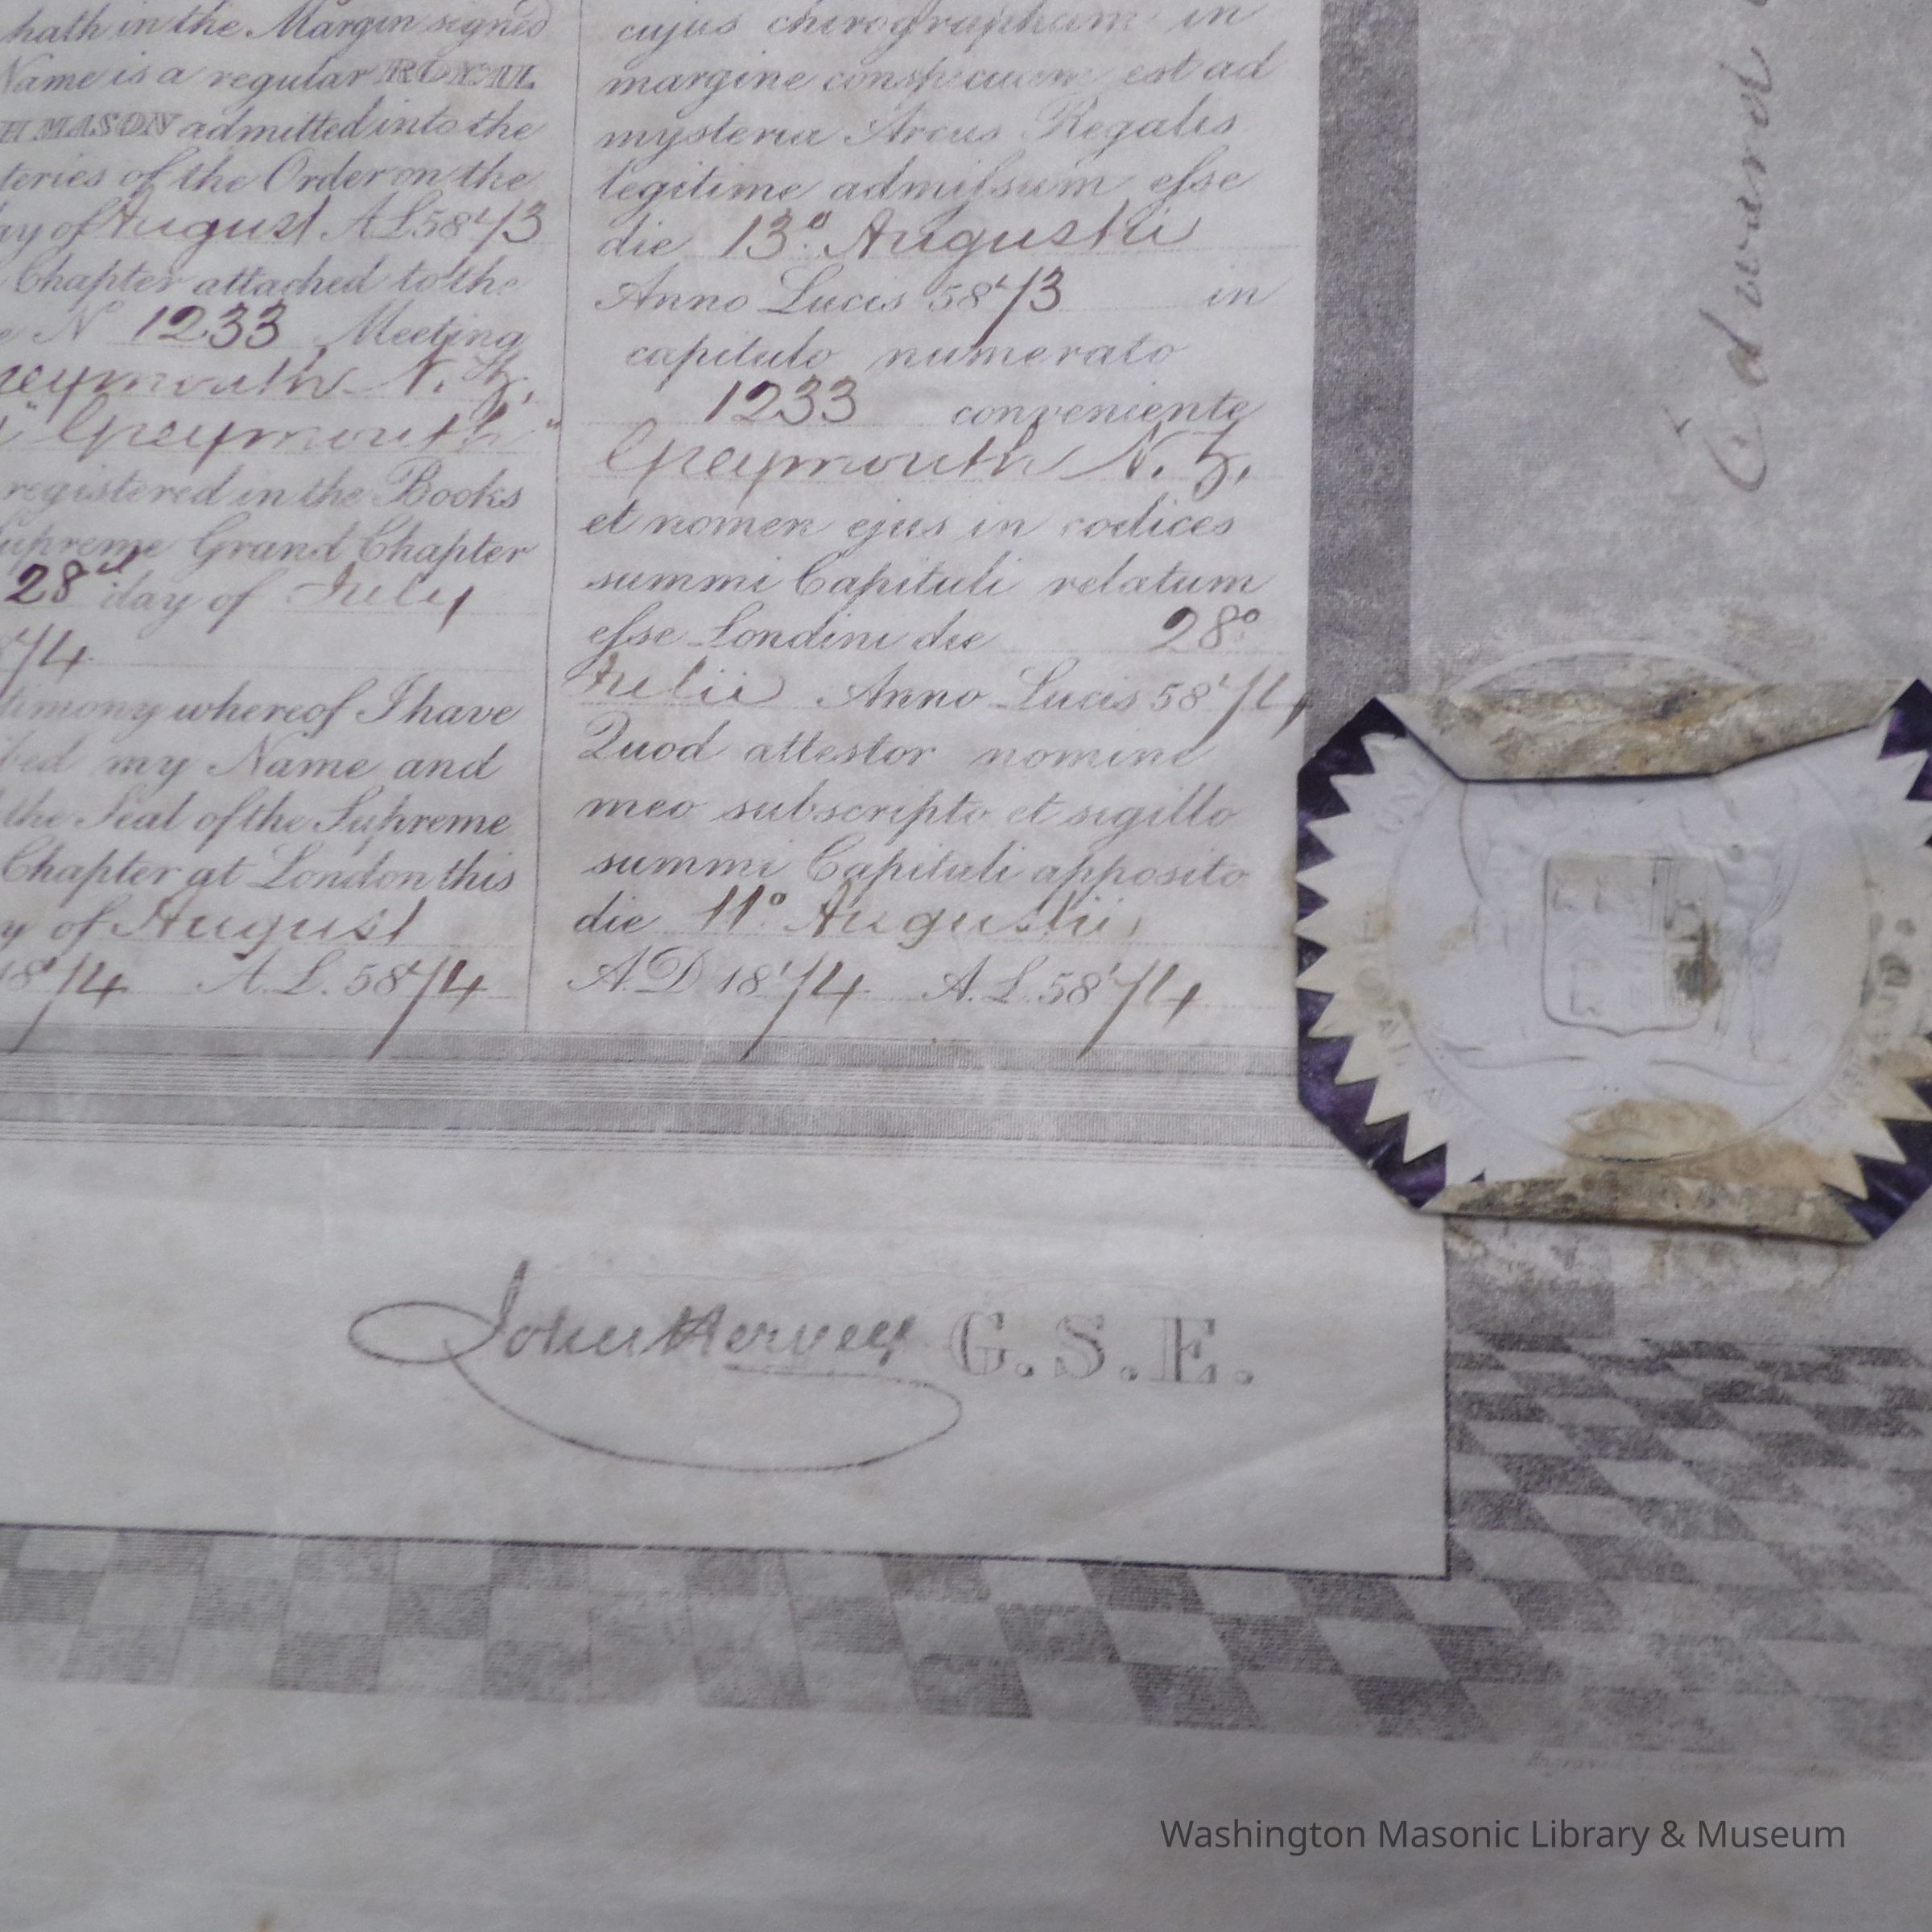 hath in the Margin signed
Name is a regular ROYAL
H MASON admitted into the
teries of the Order on the
ay of August AL 5873
Chapter attached to the
N 1233 Meeting
reymouth N. Z.,
"Greymouth"
registered in the Books
Supreme Grand Chapter
28th day of July
74
timony whereof I have
bed my Name and
the Seal of the Supreme
Chapter at London this
y of August
1874 A.L. 5874
cujus chirographum in
margine conspicuum est ad
mysteria Arcus Regalis
legitime admifsum efse
die 13º. Augustii
Anno Lucis 5873 in
capitulo numerato
1233 conveniente
Greymouth N. Z.,
et nomen ejus in codices
summi Capituli relatum
efse Londini die 28º.
Julii Anno Lucis 5874
Quod attestor nomine
meo subscripto et sigillo
summi Capituli apposito
die 11º. Augustii,
A.D 1874 A.L. 5874
Edward
John Hervey G.S.E.
Washington Masonic Library & Museum